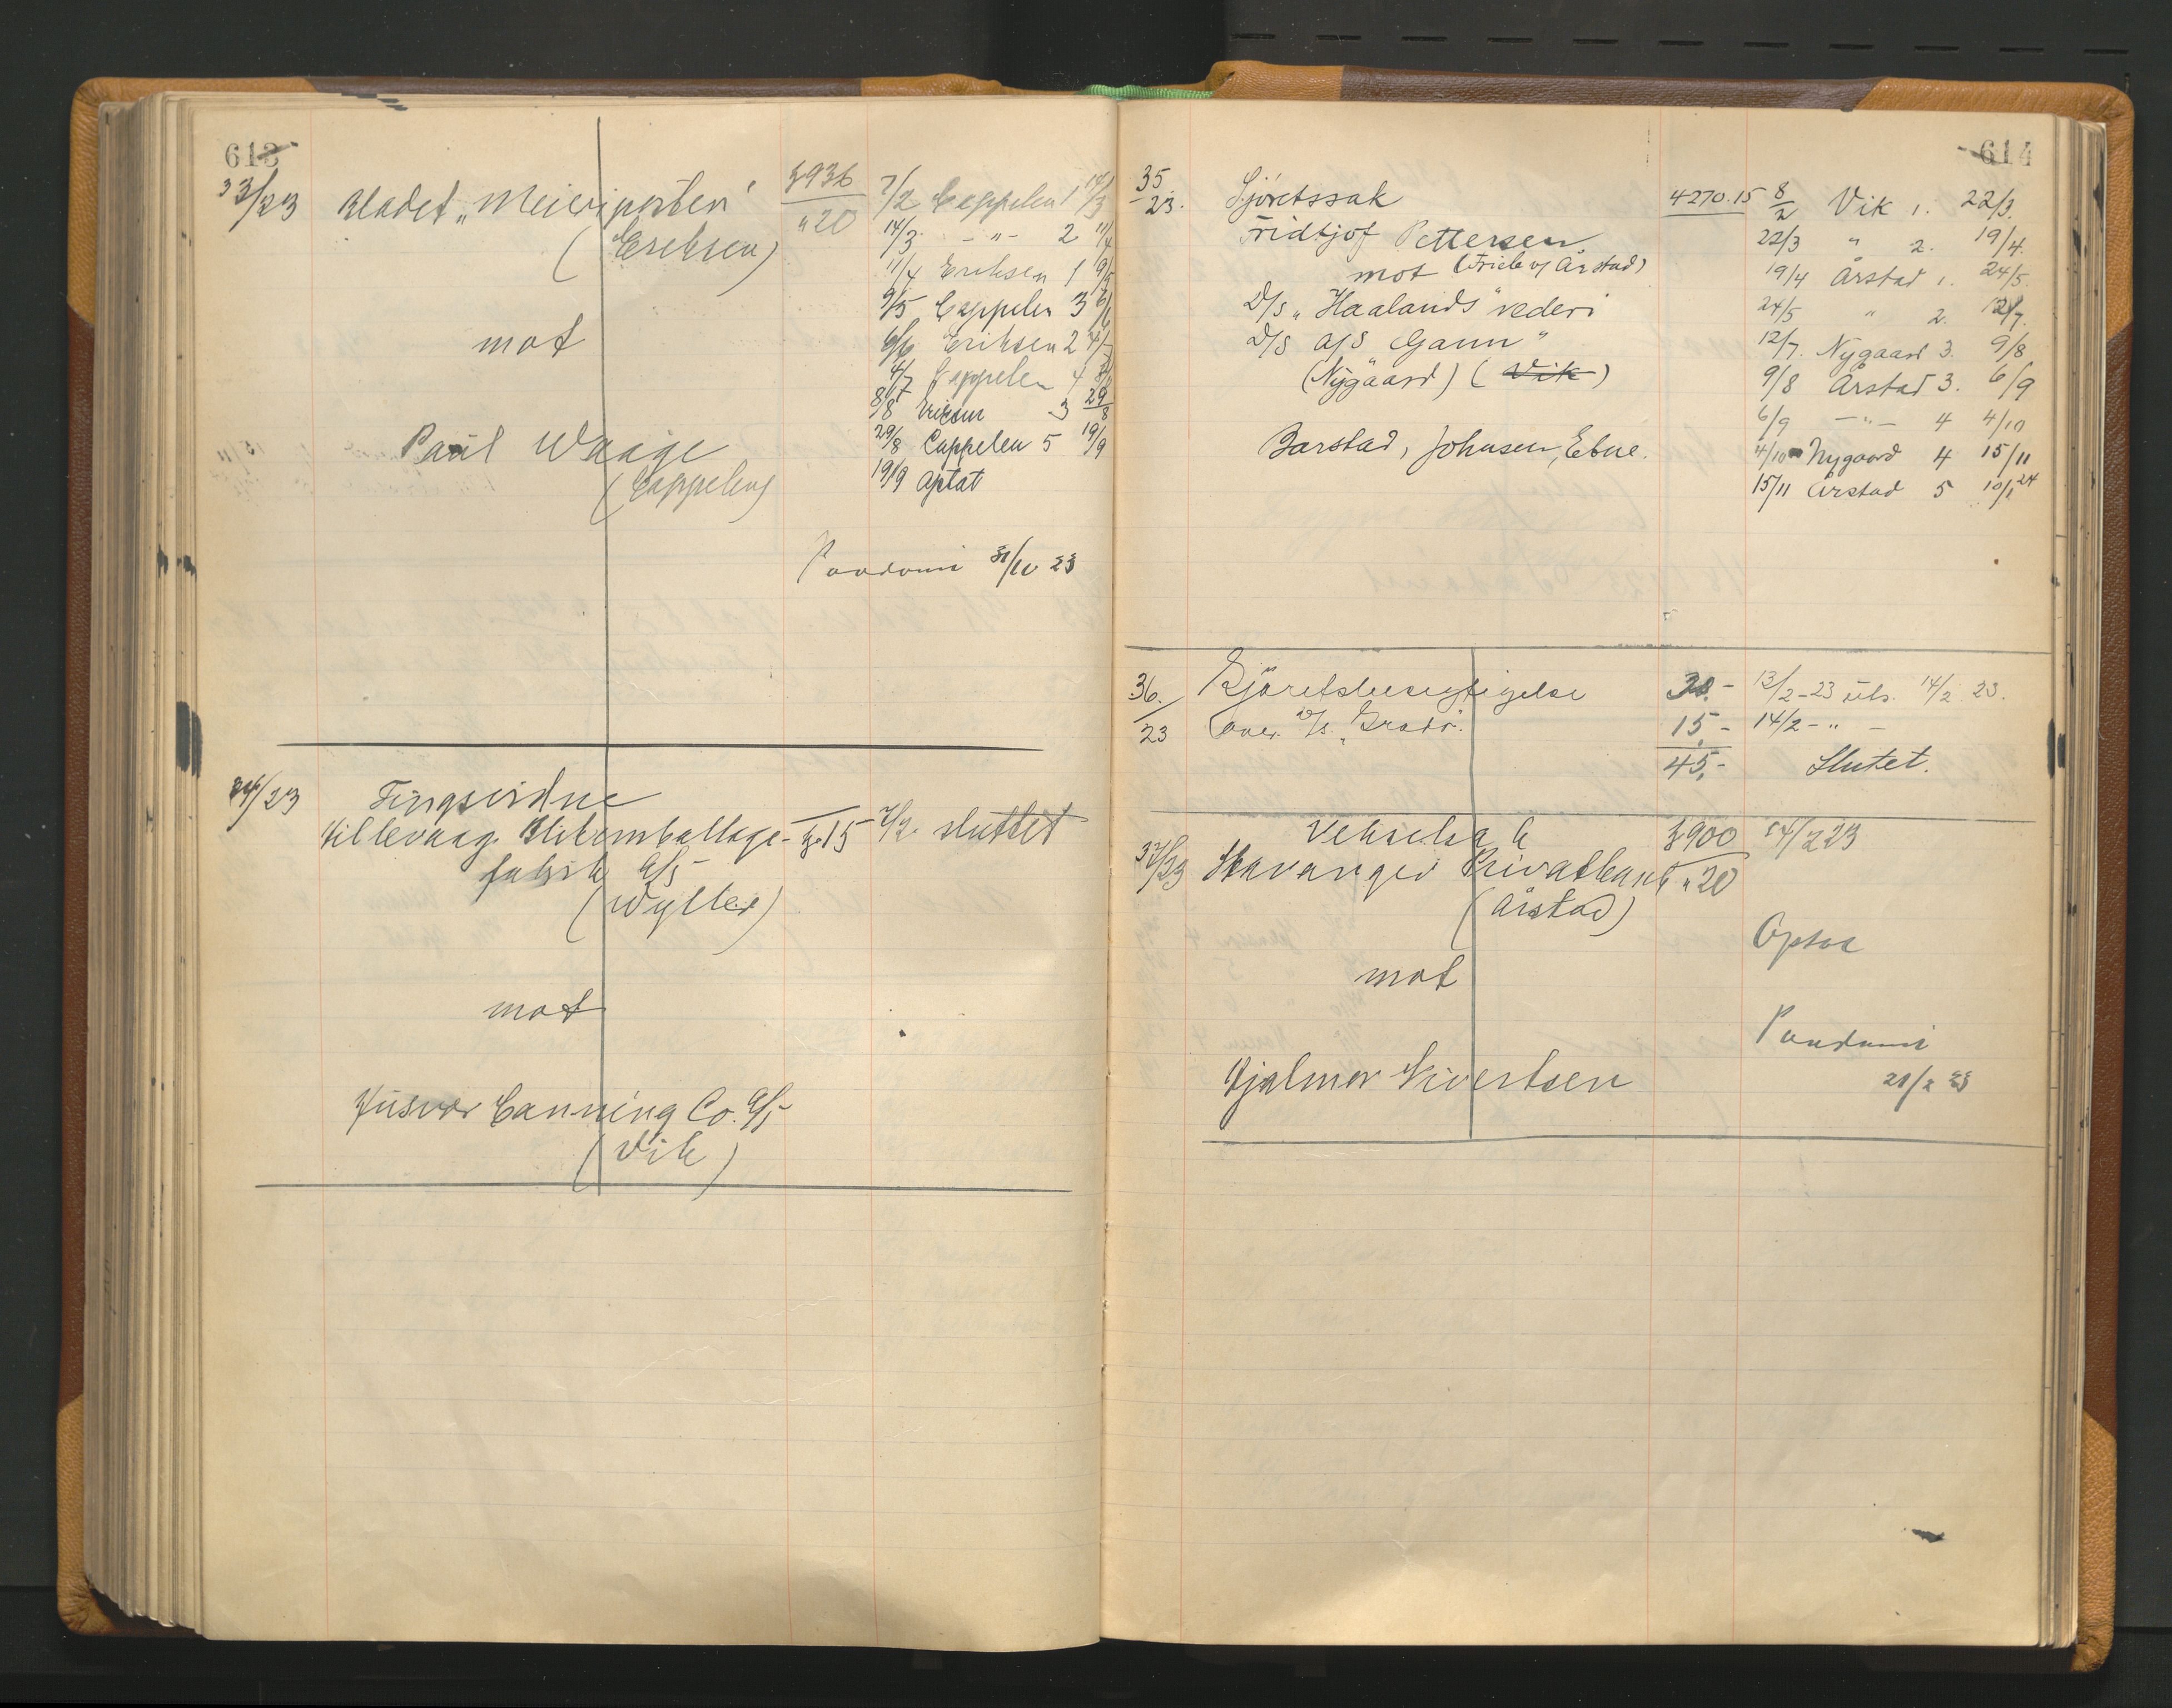 613
33/23 Bladet „Meieriposten"
(Eriksen)
mot
Paul Waage
(Cappelen)
§ 936
" 20
7/2 Cappelen 1 14/3
14/3 -"- 2 11/4
11/4 Eriksen 1 9/5
9/5 Cappelen 3 6/6
6/6 Eriksen 2 4/7
4/7 Cappelen 4 8/8
8/8 Eriksen 3 29/8
29/8 Cappelen 5 19/9
19/9 Optat
31/10 23
34/23 Tingsvidne
Hillevaag Blikemballage- § 15 7/2 sluttet
fabrik A/S
(Wyller)
mot
Husvær Canning Co. A/S
(Vik)
614
35/23. Sjøretssak
Fridtjof Pettersen
mot (Friele v/ Årstad)
D/S „Haalands" rederi
D/S A/S Gann"
(Nygaard) (Vik)
Barstad, Johnsen, Ebne.
4270.15
8/2 Vik 1. 22/3.
22/3 " 2. 19/4.
19/4 Årstad 1. 24/5.
24/5 " 2. 12/7.
12/7. Nygaard 3. 9/8
9/8 Årstad 3. 6/9
6/9 -"- 4 4/10
4/10 Nygaard 4 15/11
15/11 Årstad 5 10/1 24
36./23 Sjøretsbesigtigelse 30.- 13/2-23 uts. 14/2 23.
over D/S. 15,- 14/2 - " -
45,- Slutet.
37/23 Vekselsak § 900 14/2 23
Stavanger Privatbank " 20
(Årstad)
Optat
mot
Hjalmar Sivertsen
21/2 23